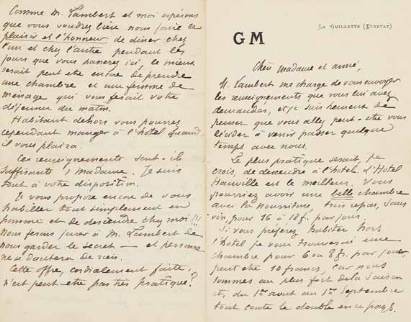 La Guillette (Etretat)
GM
Chère madame et amie,
M. Lambert me charge de vous envoyer
les renseignements que vous lui avez
demandés, et je suis heureux de
penser que vous allez peut-être vous
décider à venir passer quelque
temps avec nous.
Le plus pratique serait, je
crois, de descendre à l'hôtel. L'hôtel
Hauville est le meilleur. Vous
pourriez avoir une belle chambre
avec la nourriture, trois repas, sans
vin, pour 16 à 18f. par jour.
Si vous préférez habiter hors
l'hôtel je vous trouverai une
chambre pour 6 ou 8f. par jour,
peut-être 10 francs, car nous
sommes au plus fort de la saison
et, du 1er août au 1er Septembre
tout coûte le double en ce pays.
Comme M. Lambert et moi espérons
que vous voudrez bien nous faire le
plaisir et l'honneur de dîner chez
l'un et chez l'autre pendant les
jours que vous passerez ici, le mieux
serait peut-être encore de prendre
une chambre et une femme de
ménage qui vous ferait votre
déjeuner du matin.
Habitant dehors vous pourrez
cependant manger à l'hôtel quand
il vous plaira.
Ces renseignements sont-ils
suffisants, madame. Je suis
tout à votre disposition.
Je vous propose encore de vous
habiller tout simplement en
homme et de descendre chez moi.
Nous ferons jurer à M. Lambert de
nous garder le secret — et personne
ne se doutera de rien.
Cette offre, cordialement faite,
n'est peut-être pas très pratique?